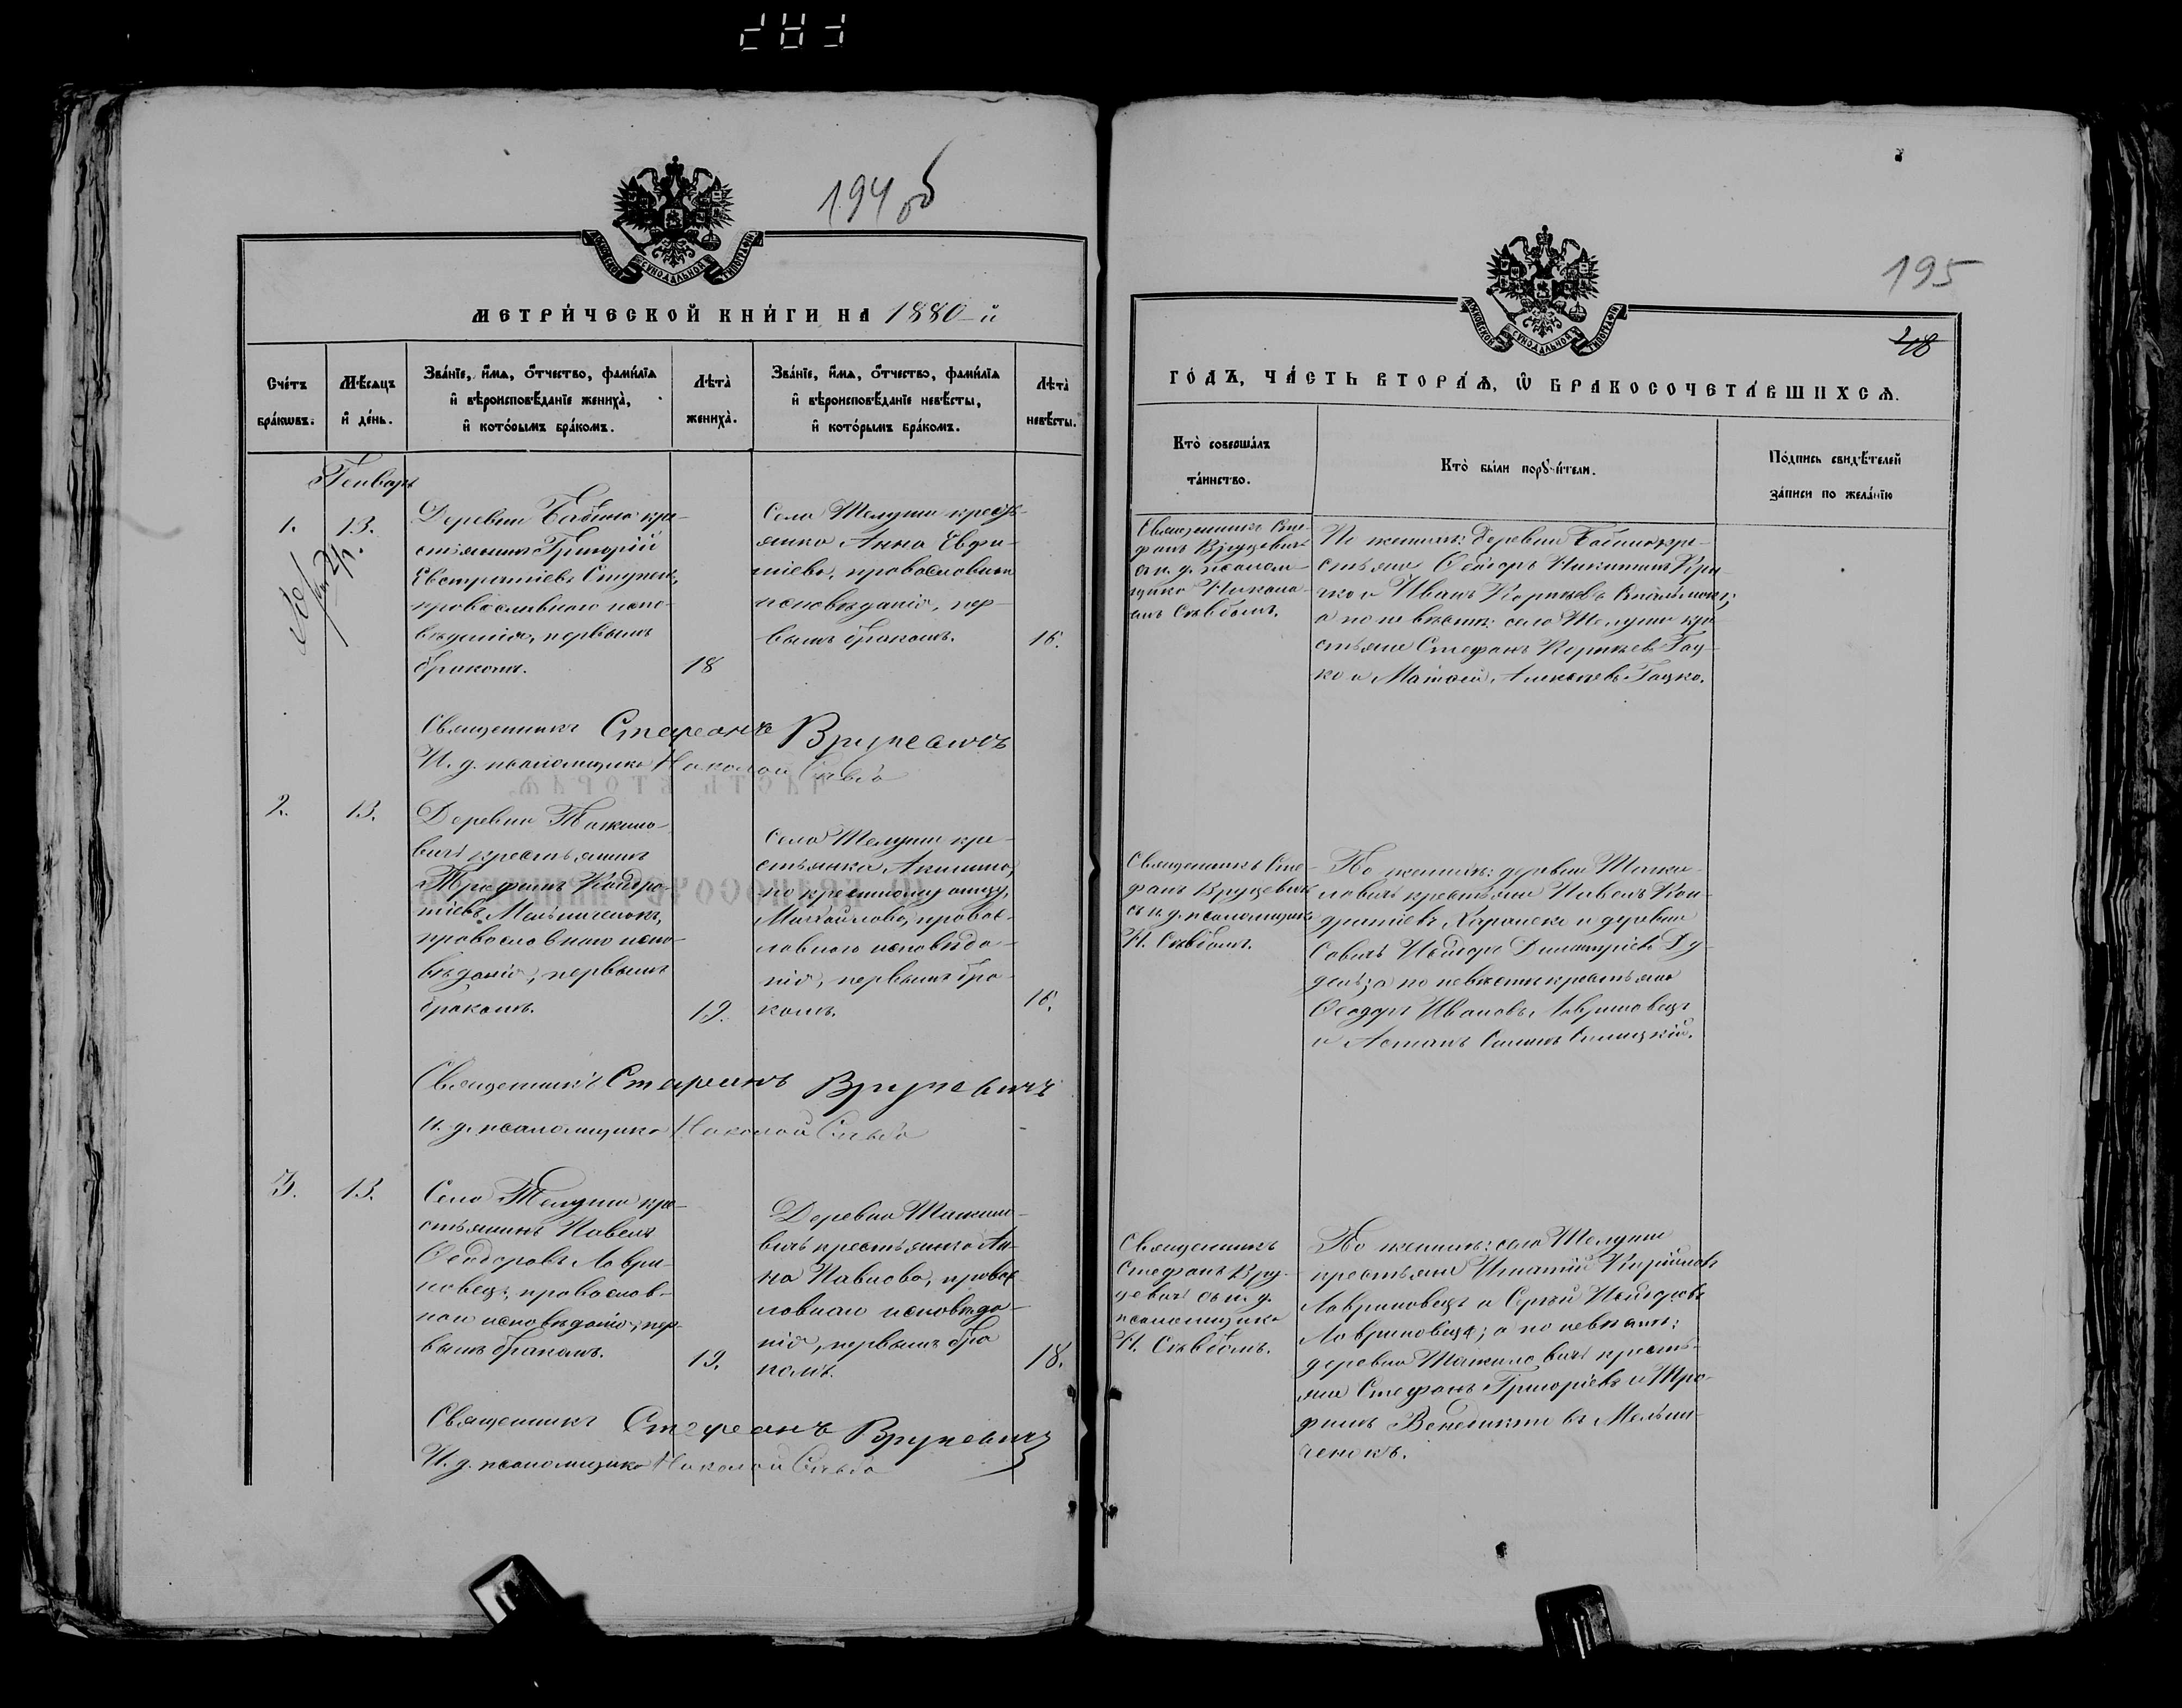 194 об
МОСКОВСКОЙ СѴНОДАЛЬНОЙ ТИПОГРАФІИ
МЕТРИ́ЧЕСКОЙ КНИ́ГИ НА 1880-й
Сче́тъ бра́кѡвъ.
Мѣ́сяцъ и҆ де́нь.
Зва́нїе, и҆́мѧ, ѻ҆́тчество, фами́лїѧ и҆ вѣроисповѣ́данїе жениха̀, и҆ кото́рымъ бра́комъ.
Лѣта̀ жениха̀.
Зва́нїе, и҆́мѧ, ѻ҆́тчество, фами́лїѧ и҆ вѣроисповѣ́данїе невѣ́сты, и҆ кото́рымъ бра́комъ.
Лѣта̀ невѣ́сты.
Генварь
1.
13.
Деревни Бабина кре-
стьянинъ Григорій
Евстратіевъ
православнаго испо-
вѣданія, первымъ
бракомъ.
18
Села Телуши кресть-
янка Анна Евфи-
міева, православнаго
исповѣданія, пер-
вымъ бракомъ.
16.
Священникъ Стефанъ Вруцевичъ
И. д. псаломщика Николай
2.
13.
Деревни Тажило-
вичъ крестьянинъ
Трофимъ Кондра-
тіевъ Мельниченокъ,
православнаго испо-
вѣданія, первымъ
бракомъ.
19.
Села Телуши кре-
стьянка Акилина,
по крестному отцу,
Михайлова, правос-
лавнаго исповѣда-
нія, первымъ бра-
комъ.
16.
Священникъ Стефанъ Вруцевичъ
И. д. псаломщика Николай
3.
13.
Села Телуши кре-
стьянинъ Павелъ
Ѳеодоровъ Лаври-
новецъ, православ-
наго исповѣданія, пер-
вымъ бракомъ.
19.
Деревни Тажило-
вичъ крестьянка Ан-
на Павлова, правос-
лавнаго исповѣда-
нія, первымъ бра
комъ.
18.
Священникъ Стефанъ Вруцевичъ
И. д. псаломщика Николай
195
МОСКОВСКОЙ СѴНОДАЛЬНОЙ ТИПОГРАФІИ
ГО́ДЪ, ЧА́СТЬ ВТОРА́Ѧ, Ѽ БРАКОСОЧЕТА́ВШИХСѦ.
Кто̀ соверша́лъ та́инство.
Кто̀ бы́ли порꙋчи́тели.
По́дпись свидѣ́телей за́писи по жела́нїю
Священникъ Сте-
фанъ Вруцевичъ
съ и. д. псалом-
щика Никола-
емъ
По женихѣ: деревни Бабина кре-
стьяне Ѳеодоръ Никитинъ
и Иванъ
а по невѣстѣ: села Телуши кре-
стьяне Стефанъ Корнѣевъ Гац-
ко и Матѳей Алексѣевъ Гацко.
Священникъ Сте-
фанъ Вруцевичъ
съ и. д. псаломщика
Н.
По женихѣ: деревни Тажи-
ловичъ крестьяне Павелъ Кон-
дратіевъ и деревни
Савичъ Димитріевъ Ду-
а по невѣстѣ крестьяне
Ѳеодоръ Ивановъ Лавриновецъ
и
Священникъ
Стефанъ Вру-
цевичъ съ и. д.
псаломщика
Н.
По женихѣ: села Телуши
крестьяне Игнатій Кириловъ
Лавриновецъ и Сергѣй
Лавриновецъ; а по невѣстѣ:
деревни Тажиловичъ кресть-
яне Стефанъ Григорьевъ и Тро-
фимъ Венедиктовъ Мельни-
ченокъ.